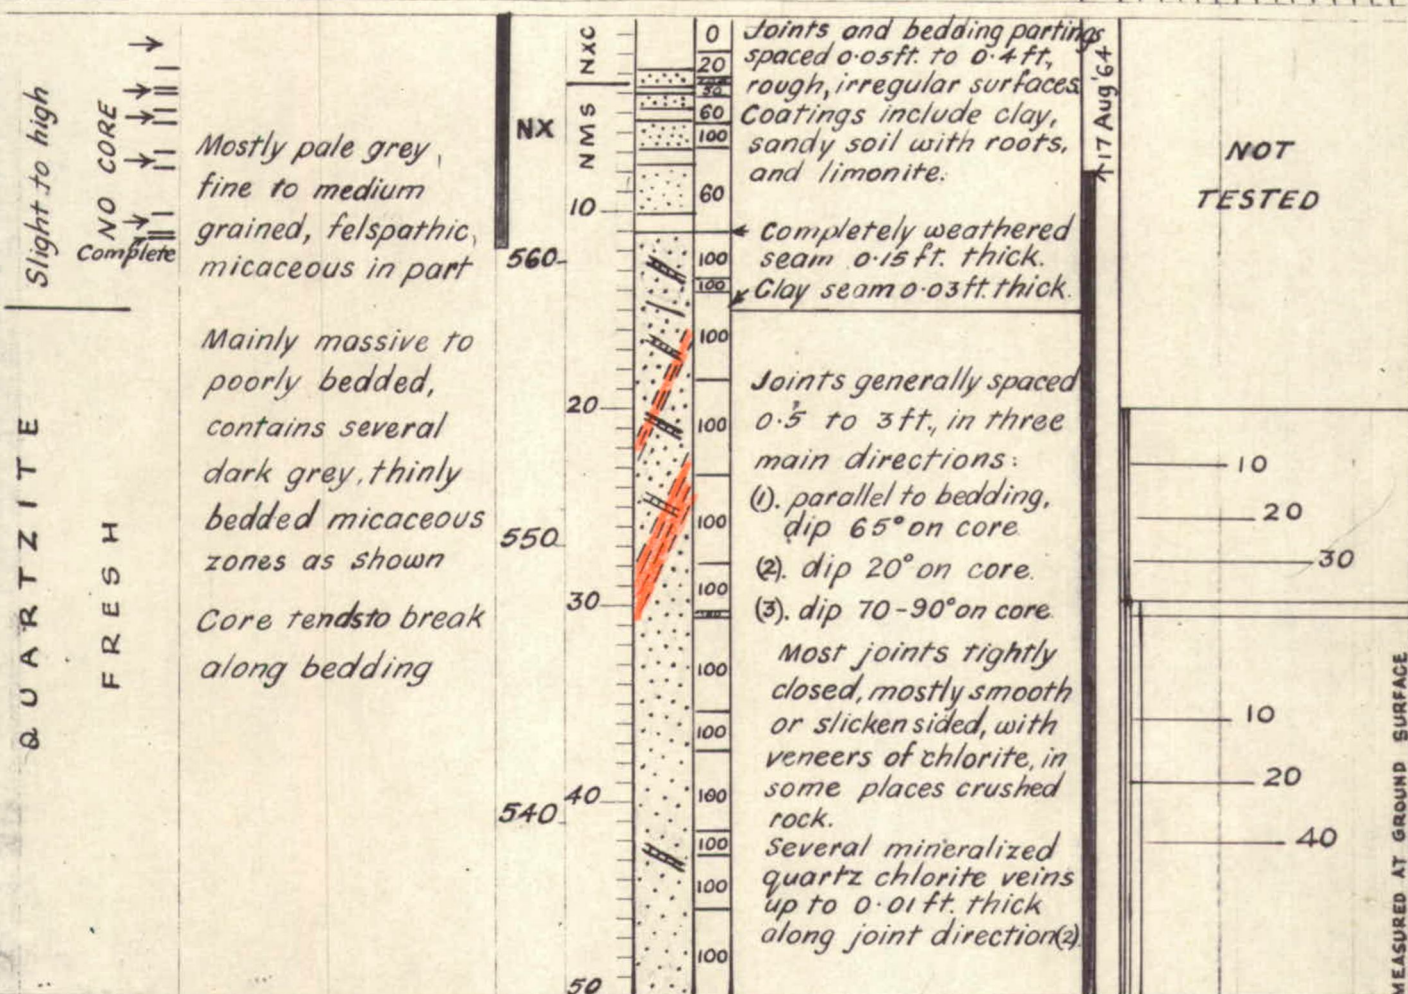 Slight to high
NO CORE
Complete
QUARTZITE
FRESH
Mostly pale grey,
fine to medium
grained, felspathic,
micaceous in part
Mainly massive to
poorly bedded,
contains several
dark grey, thinly
bedded micaceous
zones as shown
Core tends to break
along bedding
NX
560
550
540
NXC
NMS
10
20
30
40
50
0
20
50
60
100
60
100
100
100
100
100
100
100
100
100
100
100
100
Joints and bedding partings
spaced 0.05ft. to 0.4ft,
rough, irregular surfaces.
Coatings include clay,
sandy soil with roots,
and limonite.
Completely weathered
seam 0.15ft. thick.
Clay seam 0.03ft. thick.
Joints generally spaced
0.5 to 3ft., in three
main directions:
(1). parallel to bedding,
dip 65° on core
(2). dip 20° on core.
(3). dip 70-90° on core
Most joints tightly
closed, mostly smooth
or slickensided, with
veneers of chlorite, in
some places crushed
rock.
Several mineralized
quartz chlorite veins
up to 0.01ft. thick
along joint direction(2).
17 Aug '64
NOT
TESTED
10
20
30
10
20
40
MEASURED AT GROUND SURFACE